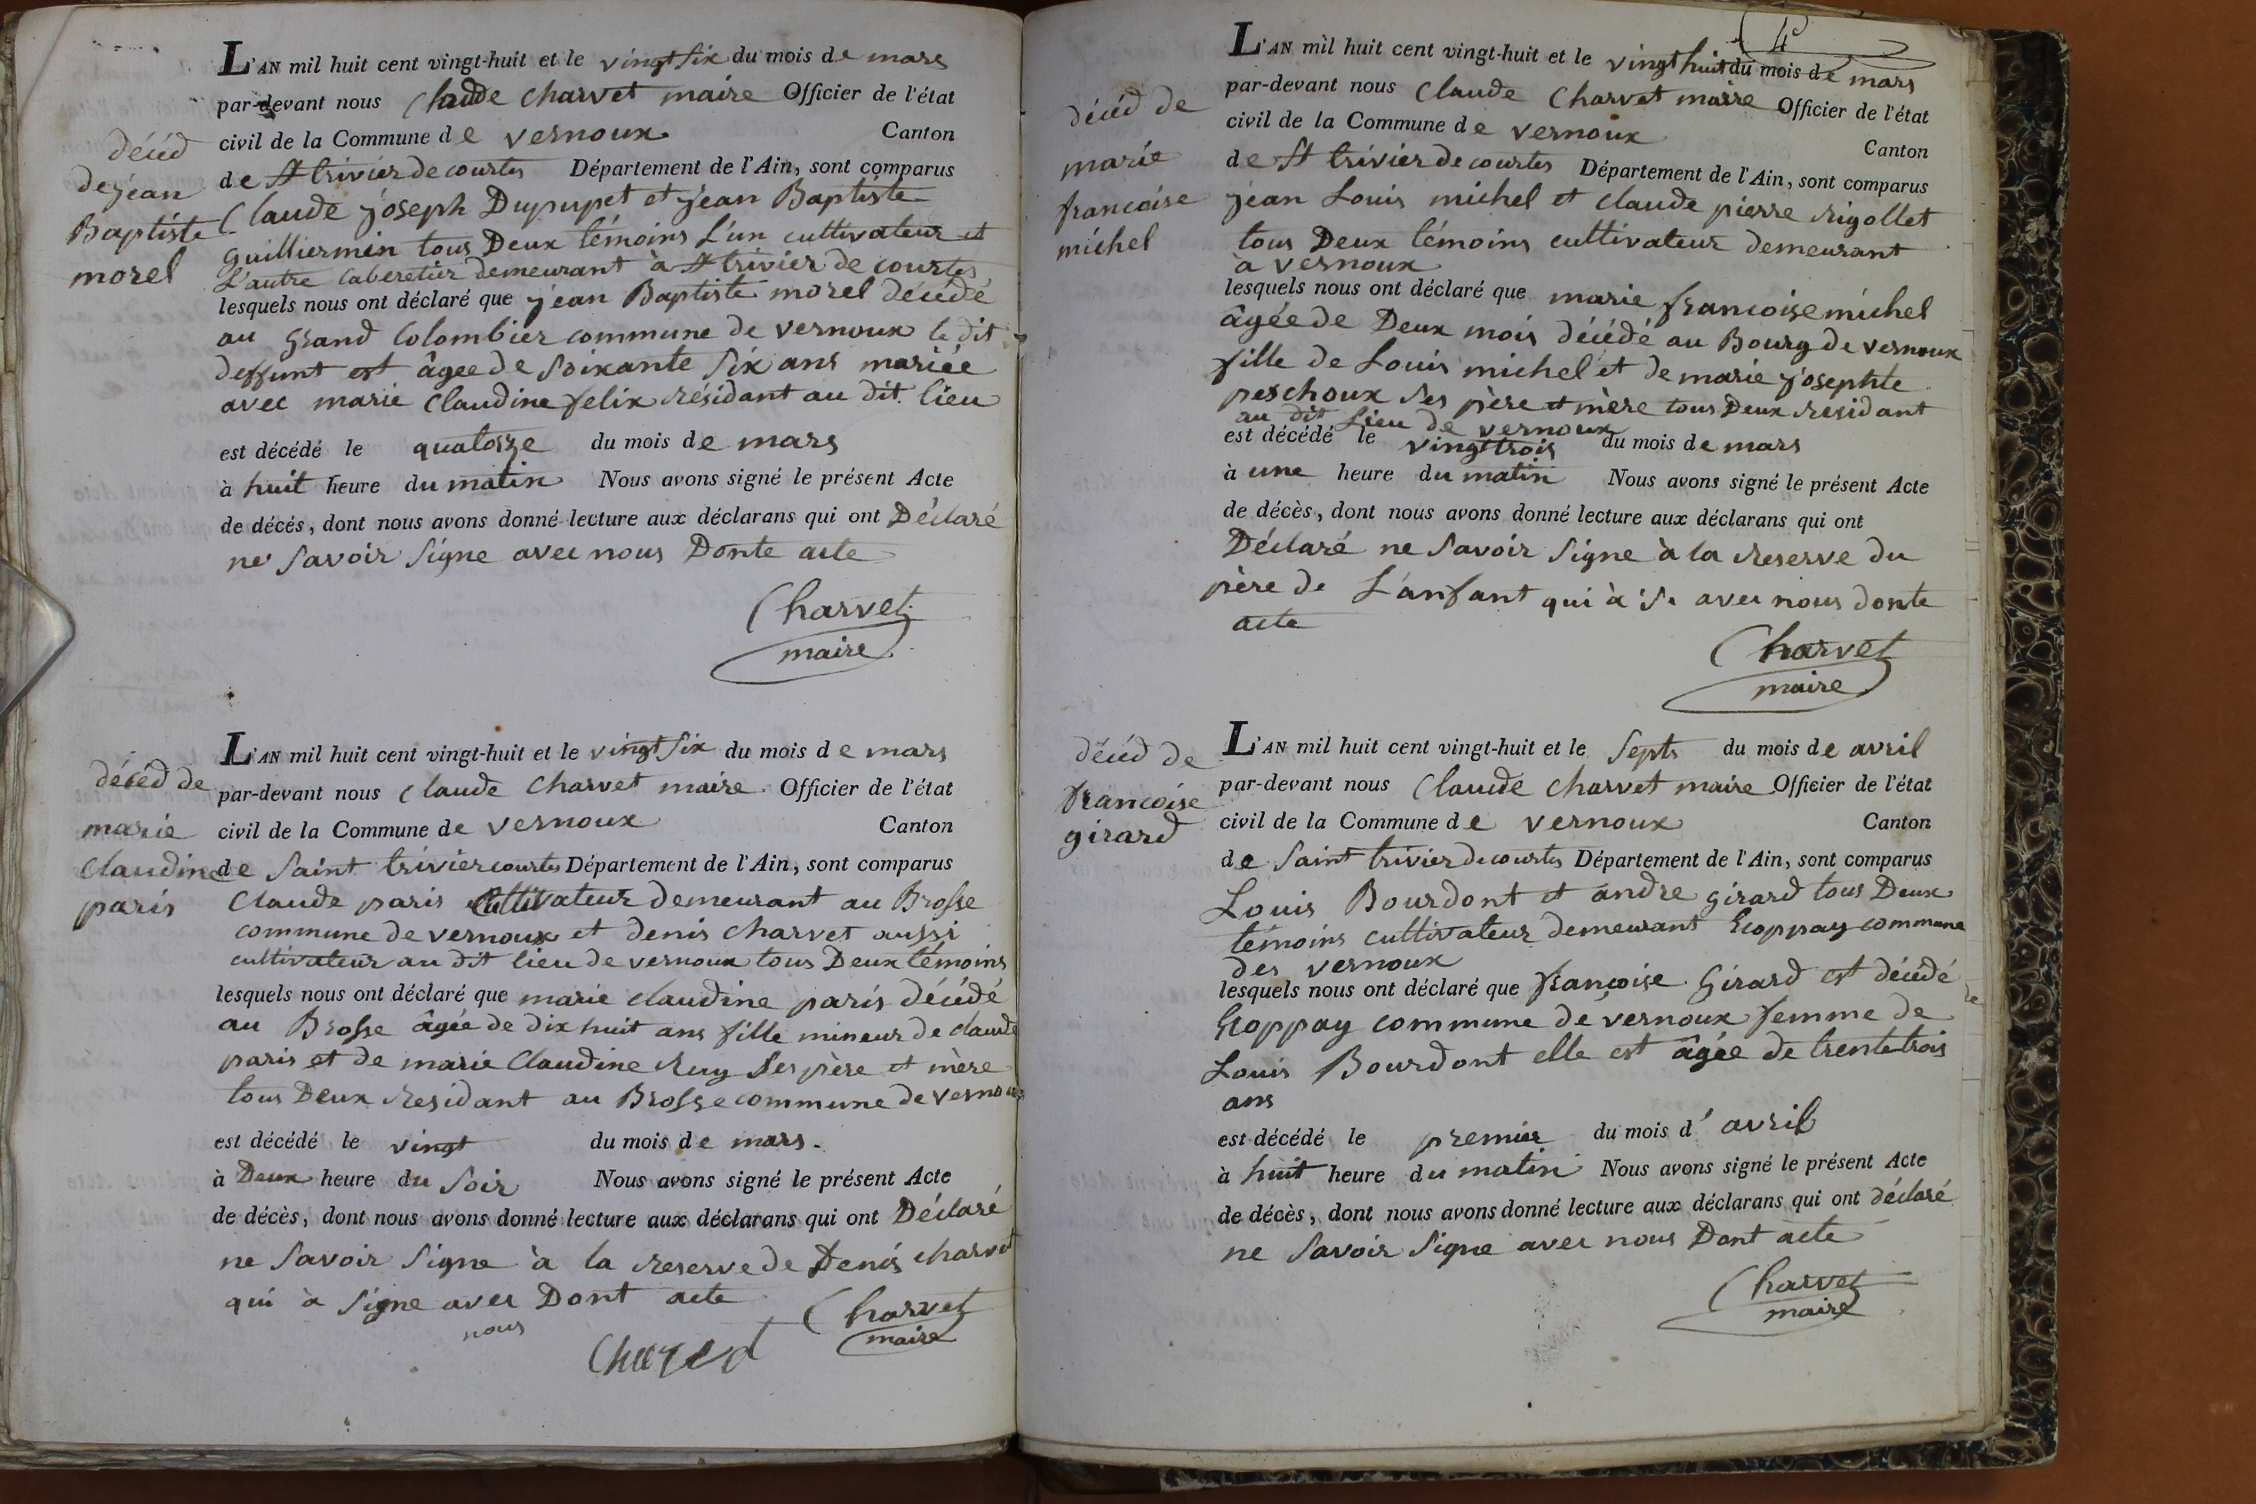 décéd
de jean
Baptiste
morel
L'AN mil huit cent vingt-huit et le vingt six du mois de mars
par-devant nous Claude Charvet maire Officier de l'état
civil de la Commune de vernoux Canton
de St trivier de courtes Département de l'Ain, sont comparus
Claude joseph Dupupet et jean Baptiste
guilliermin tous Deux témoins L'un cultivateur et
L'autre Caberetier demeurant à St trivier de courtes
lesquels nous ont déclaré que jean Baptiste morel décédé
au grand Colombier commune de vernoux le dit
deffunt est âgée de soixante six ans mariée
avec marie Claudine felix résidant au dit lieu
est décédé le quatorze du mois de mars
à huit heure du matin Nous avons signé le présent Acte
de décés, dont nous avons donné lecture aux déclarans qui ont Déclaré
ne savoir signe avec nous Donte acte
Charvet
maire
décéd de
marie
Claudine
paris
L'AN mil huit cent vingt-huit et le vingt six du mois de mars
par-devant nous Claude Charvet maire Officier de l'état
civil de la Commune de vernoux Canton
de Saint trivier courtes Département de l'Ain, sont comparus
Claude paris Cultivateur demeurant au Brosse
commune de vernoux et denis charvet aussi
cultivateur au dit lieu de vernoux tous Deux témoins
lesquels nous ont déclaré que marie claudine paris décédé
au Brosse âgée de dix huit ans fille mineur de claude
paris et de marie Claudine Ruy ses père et mère
tous Deux residant au Brosse commune de vernoux
est décédé le vingt du mois de mars
à Deux heure du soir Nous avons signé le présent Acte
de décès, dont nous avons donné lecture aux déclarans qui ont Déclaré
ne savoir signe à la reserve de Denis charvet
qui à signe avec Dont acte
nous
Charvet
maire
Charvet
4
décéd de
marie
francoise
michel
L'AN mil huit cent vingt-huit et le vingt huit du mois de mars
par-devant nous Claude Charvet maire Officier de l'état
civil de la Commune de vernoux Canton
de St trivier de courtes Département de l'Ain, sont comparus
jean Louis michel et claude pierre rigollet
tous Deux témoins cultivateur demeurant
à vernoux
lesquels nous ont déclaré que marie francoise michel
âgée de Deux mois décédé au Bourg de vernoux
fille de Louis michel et de marie josephte
peschoux ses père et mère tous Deux residant
au dit Lieu de vernoux
est décédé le vingt trois du mois de mars
à une heure du matin Nous avons signé le présent Acte
de décès, dont nous avons donné lecture aux déclarans qui ont
Déclaré ne savoir signe à la reserve du
père de L'anfant qui à avec nous donte
acte
Charvet
maire
décéd de
francoise
girard
L'AN mil huit cent vingt-huit et le septs du mois de avril
par-devant nous Claude charvet maire Officier de l'état
civil de la Commune de vernoux Canton
de Saint trivier de courtes Département de l'Ain, sont comparus
Louis Bourdont et andre girard tous Deux
témoins cultivateur demeurant Ecoppay commune
des vernoux
lesquels nous ont déclaré que françoise Girard est décédé
Ecoppay commune de vernoux femme de
Louis Bourdont elle est âgée de trente trois
ans
est décédé le premier du mois d'avril
à huit heure du matin Nous avons signé le présent Acte
de décès, dont nous avons donné lecture aux déclarans qui ont déclaré
ne savoir signe avec nous Dont acte
Charvet
maire